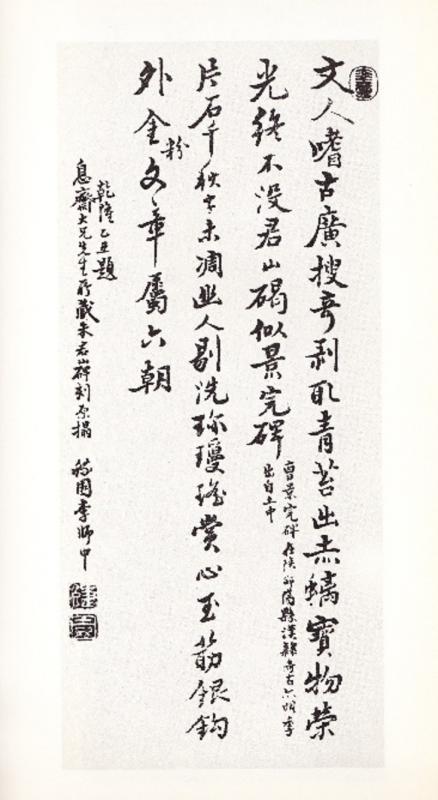 文人嗜古廣搜奇剥取青苔出赤螭寶物榮
光終不没君山碣似景完碑
曹景完碑在陝郃陽縣漢隸奇古亦明季
出自土中
片石千秋字未凋幽人剔洗珎瓊瑶賞心玉筯銀鈎
外金粉文章屬六朝
乾隆乙丑題
息齋大兄先生所藏朱君山碑刻原搨 園李師中